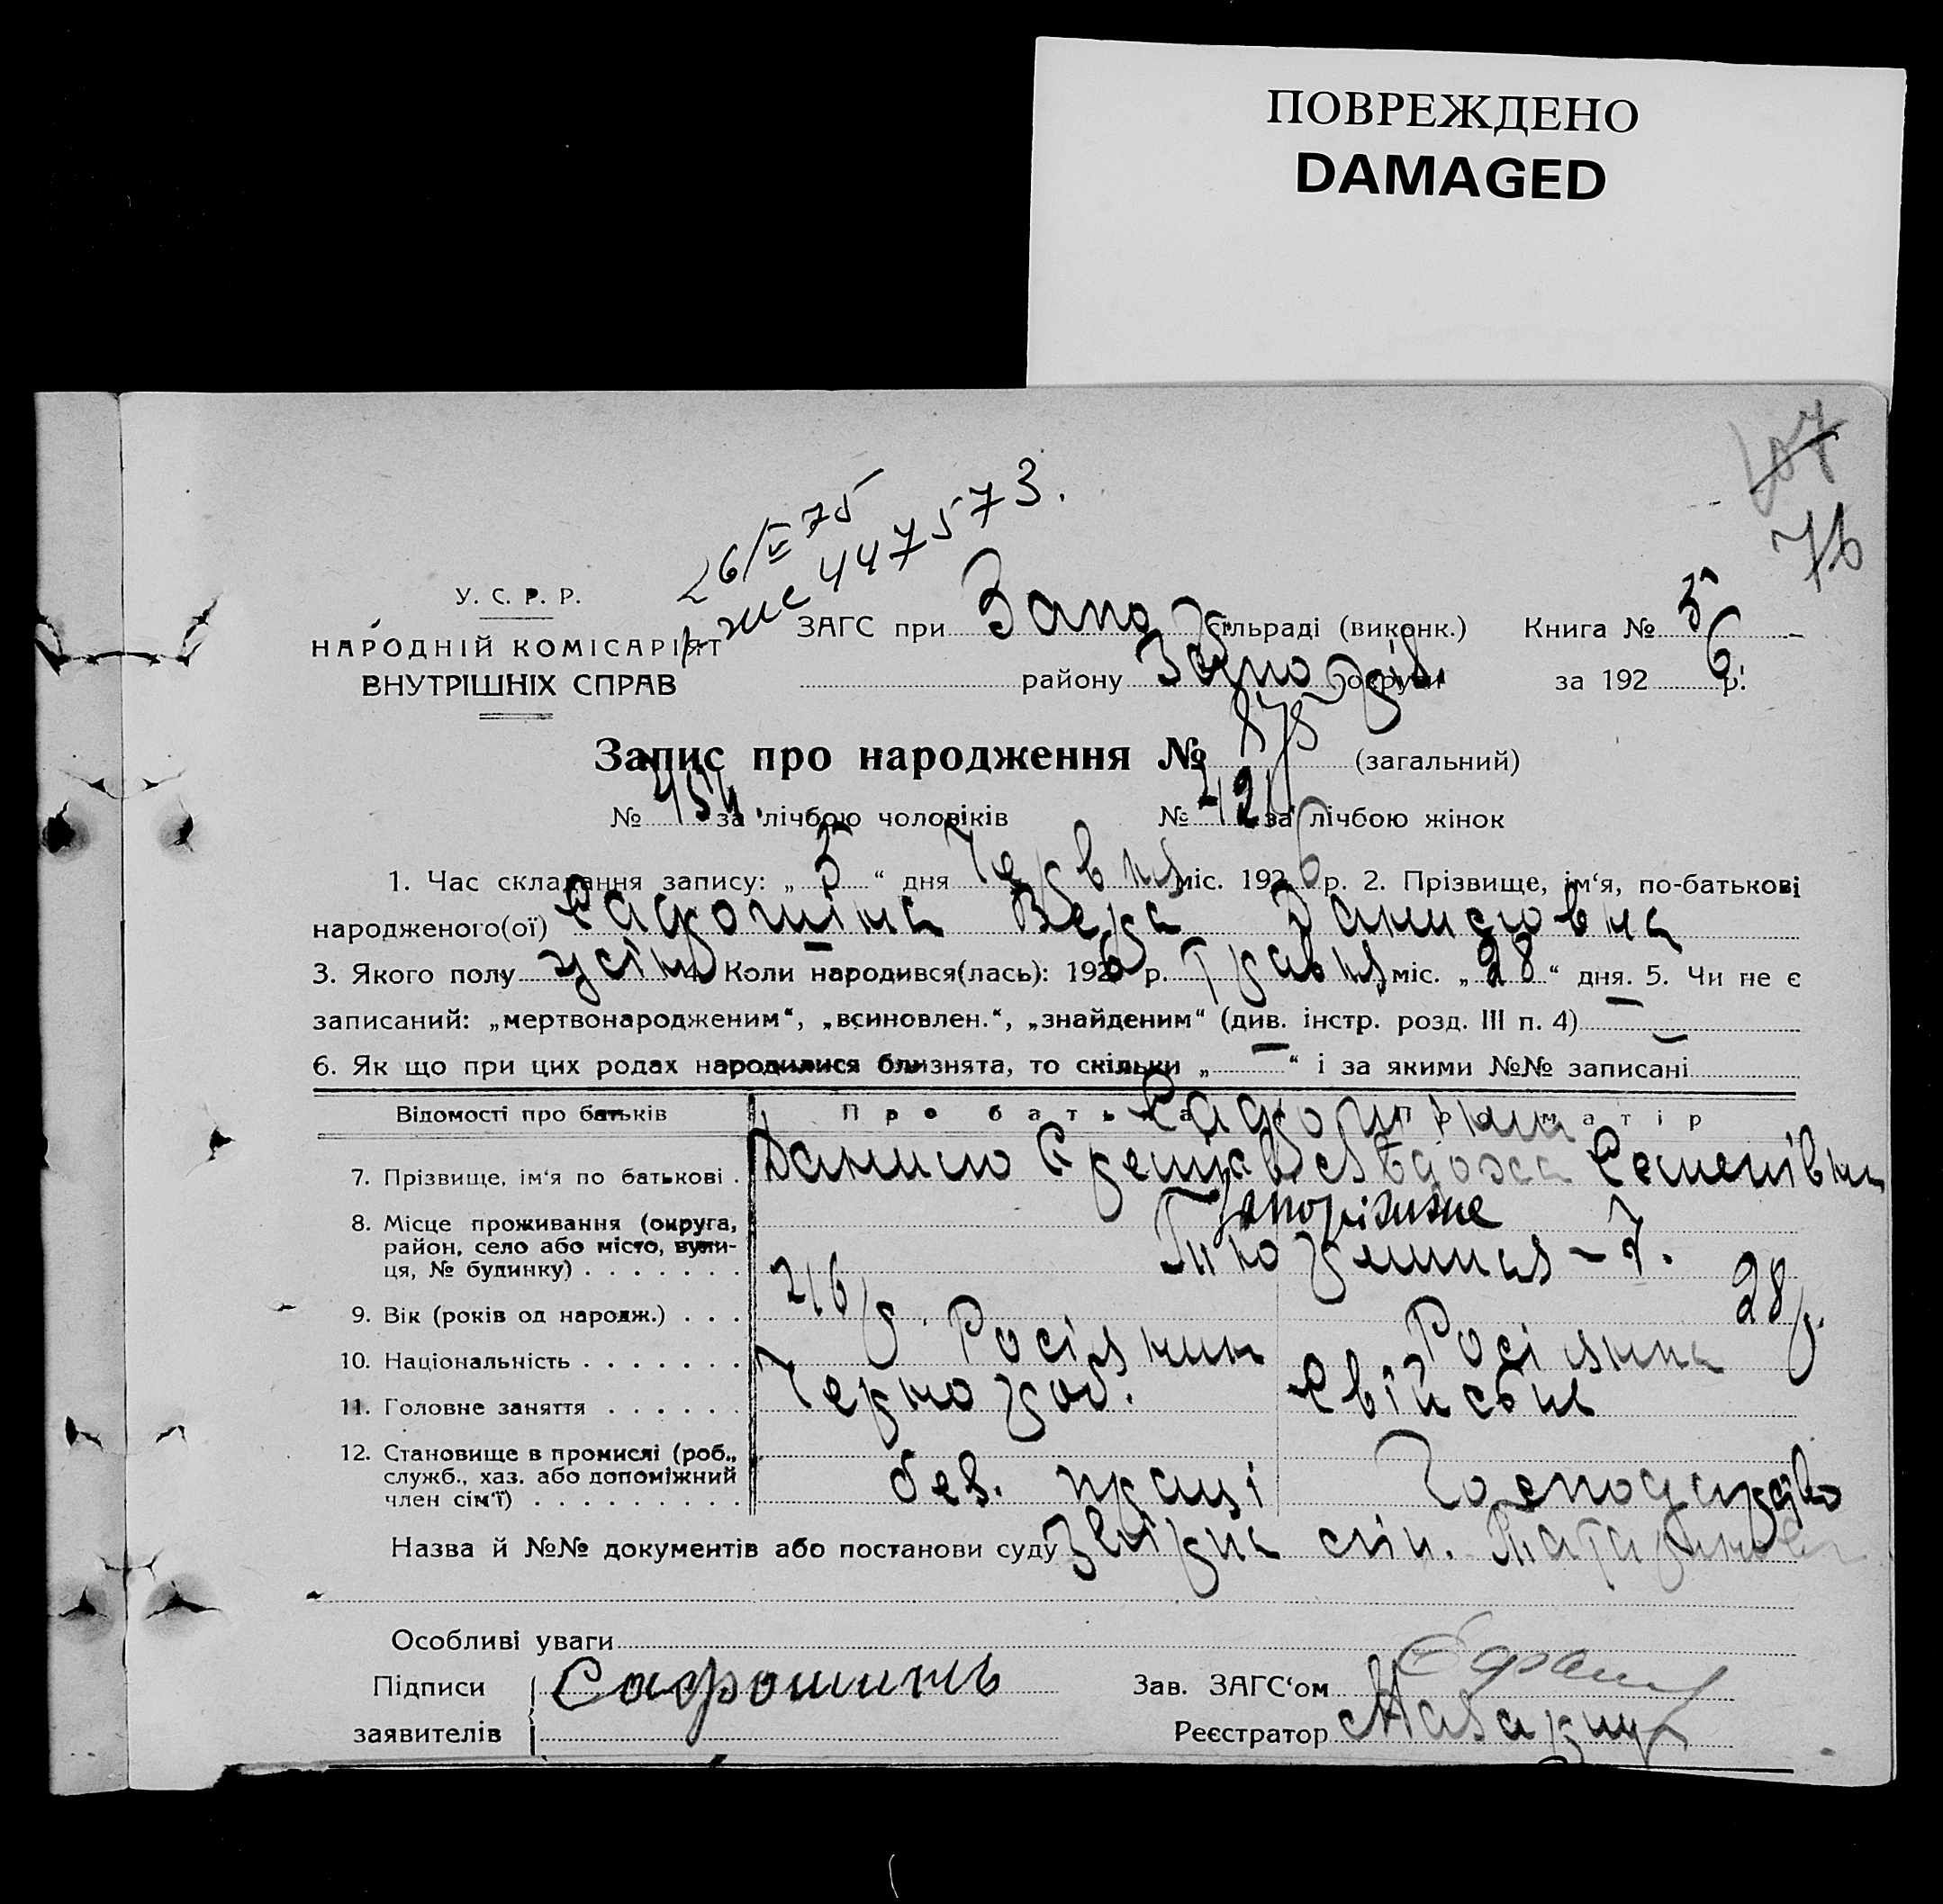 ПОВРЕЖДЕНО
DAMAGED
107
76
26/V 75
447573.
У. С. Р. Р.
НАРОДНІЙ КОМІСАРІЯТ
ВНУТРІШНІХ СПРАВ
ЗАГС при Запо сільраді (виконк.) Книга № 5
району Запоріз. округи за 1926 р.
Запис про народження № 875 (загальний)
№ 454 за лічбою чоловіків № 421 за лічбою жінок
1. Час складання запису: „5“ дня Червня міс. 1926 р. 2. Прізвище, ім‘я, по-батькові
народженого(ої) Сафошіна Вера Даниловна
3. Якого полу жін 4. Коли народився(лась): 1926 р. Травня міс. „28“ дня. 5. Чи не є
записаний: „мертвонародженим“, „всиновлен.“, „знайденим“ (див. інстр. розд. III п. 4) —
6. Як що при цих родах народилися близнята, то скільки „—“ і за якими №№ записані —
Відомості про батьків Про батька Про матір
7. Прізвище, ім‘я по батькові . Данило Євдокія Семенівна
8. Місце проживання (округа, район, село або місто, вули-ця, № будинку) Запоріжжя
– 7.
9. Вік (років од народж.) . . . 26 р. 28 р.
10. Національність . . . . . . . Росіянин Росіянка
11. Головне заняття . . . . . . Чернороб. Свійське
12. Становище в промислі (роб., служб., хаз. або допоміжний член сім‘ї) . . . . . . . . . без. праці Господарство
Назва й №№ документів або постанови суду
Особливі уваги
Підписи Сафошинъ Зав. ЗАГС‘ом
заявителів Реєстратор